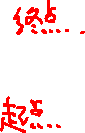 终点...
起点...